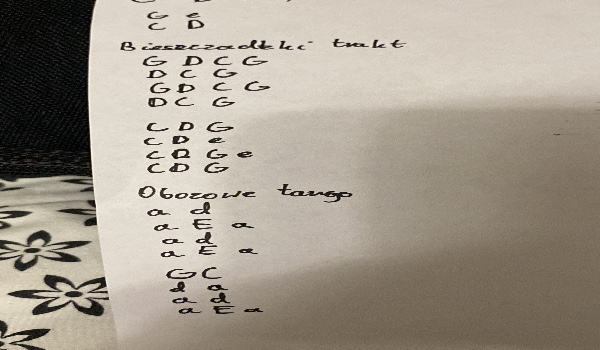 G e
C D
Bieszczadzki trakt
G D C G
D C G
G D C G
D C G
C D G
C D e
C D G e
C D G
Obozowe tango
a d
a E a
a d
a E a
G C
d a
a d
a E a